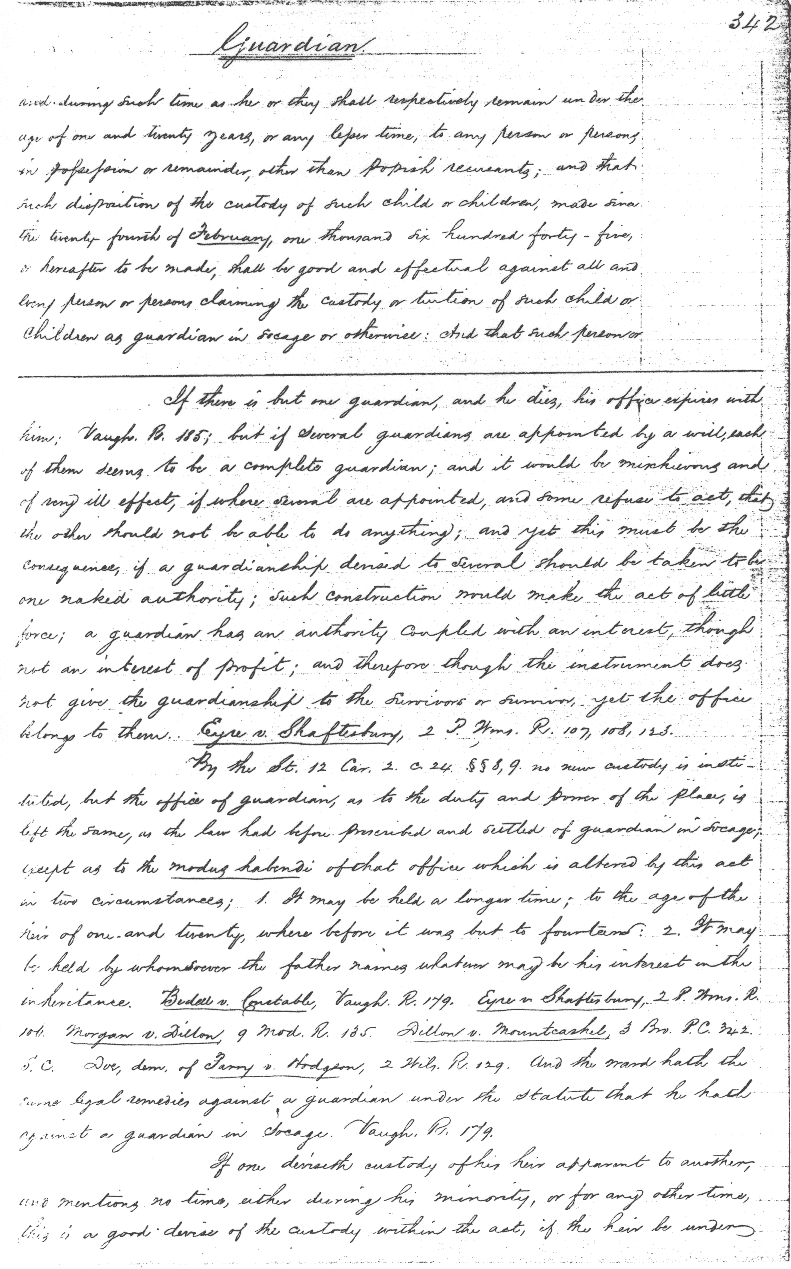 342
Guardian
and during such time as he or they shall respectively remain under the
age of one and twenty years, or any lesser time, to any person or persons
in possession or remainder, other than Popish recusants; and that
such disposition of the custody of such child or children, made since
the twenty-fourth of February, one thousand six hundred forty-five,
or hereafter to be made, shall be good and effectual against all and
every person or persons claiming the custody or tuition of such child or
children as guardian in socage or otherwise: And that such person or
If there is but one guardian, and he dies, his office expires with
him; Vaugh. R. 185; but if several guardians are appointed by a will, each
of them seems to be a complete guardian; and it would be mischievous and
of very ill effect, if where several are appointed, and some refuse to act, that
the other should not be able to do anything; and yet this must be the
consequence, if a guardianship devised to several should be taken to be
one naked authority; such construction would make the act of little
force; a guardian has an authority coupled with an interest, though
not an interest of profit; and therefore though the instrument does
not give the guardianship to the survivors or survivor, yet the office
belongs to them. Eyre v. Shaftesbury, 2 P. Wms. R. 107, 108, 123.
By the St. 12 Car. 2. c. 24. §§ 8, 9. no new custody is insti-
tuted, but the office of guardian, as to the duty and power of the place, is
left the same, as the law had before prescribed and settled of guardian in socage;
except as to the modus habendi of that office which is altered by this act
in two circumstances; 1. It may be held a longer time; to the age of the
heir of one and twenty, where before it was but to fourteen: 2. It may
be held by whomsoever the father names whatever may be his interest in the
inheritance. Bedell v. Constable, Vaugh. R. 179. Eyre v Shaftesbury, 2 P. Wms. R.
106. Morgan v. Dillon, 9 Mod. R. 135. Dillon v. Mountcashel, 3 Bro. P.C. 342.
S. C. Doe, dem. of Parry v. Hodgson, 2 Wils. R. 129. And the ward hath the
same legal remedies against a guardian under the statute that he hath
against a guardian in Socage. Vaugh. R. 179.
If one deviseth custody of his heir apparent to another,
and mentions no time, either during his minority, or for any other time,
this is a good devise of the custody within the act, if the heir be under